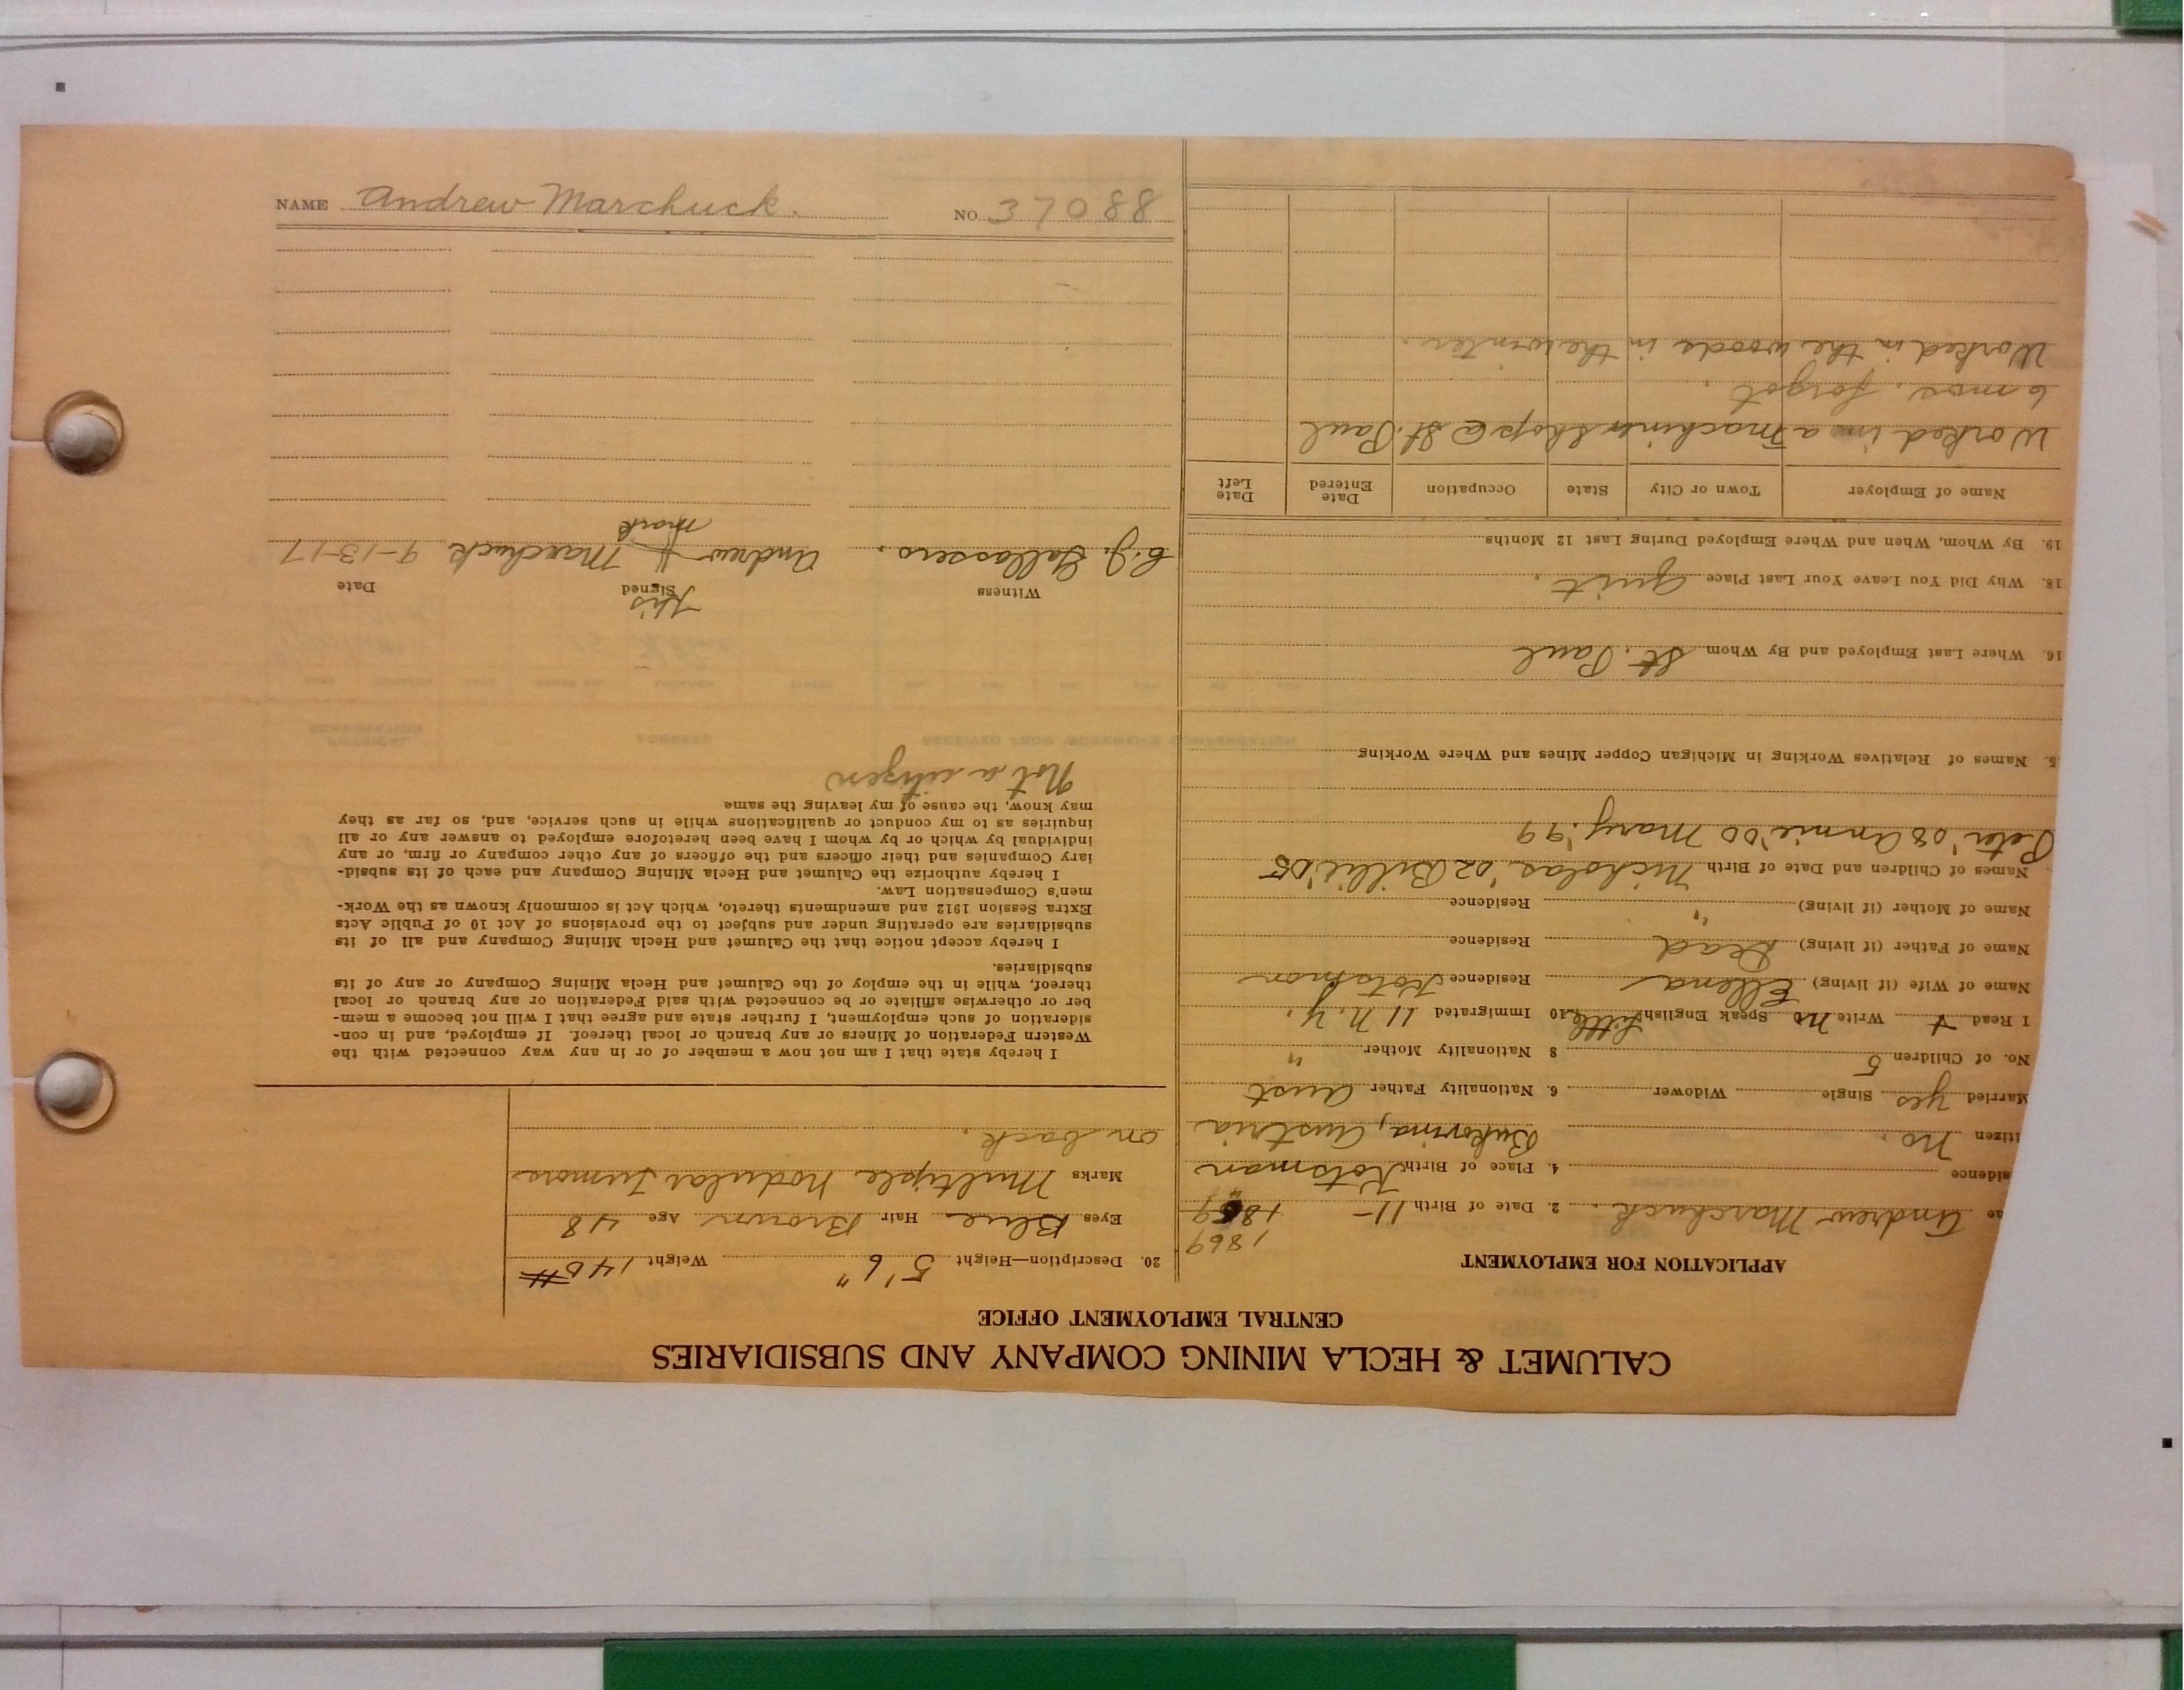 CALUMET & HECLA MINING COMPANY AND SUBSIDIARIES
CENTRAL EMPLOYMENT OFFICE
APPLICATION FOR EMPLOYMENT
1869
ae Andrew Marchuck. 2. Date of Birth 11-
sidence 4. Place of Birth Kotsman
itizen no. Bukovina, Austria
Married yes Single Widower 6. Nationality Father Aust
No. of Children 5 8 Nationality Mother "
I Read + Write no Speak English Little 10 Immigrated 11 N.Y.
Name of Wife (if living) Ellena Residence Kotsman
Name of Father (if living) Dead Residence
Name of Mother (if living) " Residence
Names of Children and Date of Birth Nicholas '02 Billie '05
Peter '08 Annie '00 Mary '99
5. Names of Relatives Working in Michigan Copper Mines and Where Working
16. Where Last Employed and By Whom St. Paul
18. Why Did You Leave Your Last Place quit.
19. By Whom, When and Where Employed During Last 12 Months
Name of Employer Town or City State Occupation Date Entered Date Left
Worked in a machine shop @ St. Paul
6 mos. forgot.
Worked in the woods in the winter.
20. Description—Height 5'6" Weight 140#
Eyes Blue Hair Brown Age 48
Marks Multiple nodular Tumors
on back.
I hereby state that I am not now a member of or in any way connected with the
Western Federation of Miners or any branch or local thereof. If employed, and in con-
sideration of such employment, I further state and agree that I will not become a mem-
ber or otherwise affiliate or be connected with said Federation or any branch or local
thereof, while in the employ of the Calumet and Hecla Mining Company or any of its
subsidiaries.
I hereby accept notice that the Calumet and Hecla Mining Company and all of its
subsidiaries are operating under and subject to the provisions of Act 10 of Public Acts
Extra Session 1912 and amendments thereto, which Act is commonly known as the Work-
men's Compensation Law.
I hereby authorize the Calumet and Hecla Mining Company and each of its subsid-
iary Companies and their officers and the officers of any other company or firm, or any
individual by which or by whom I have been heretofore employed to answer any or all
inquiries as to my conduct or qualifications while in such service, and, so far as they
may know, the cause of my leaving the same
Not a citizen
Witness Signed Date
His
Andrew Marchuck 9-13-17
mark
NAME Andrew Marchuck. NO. 37088